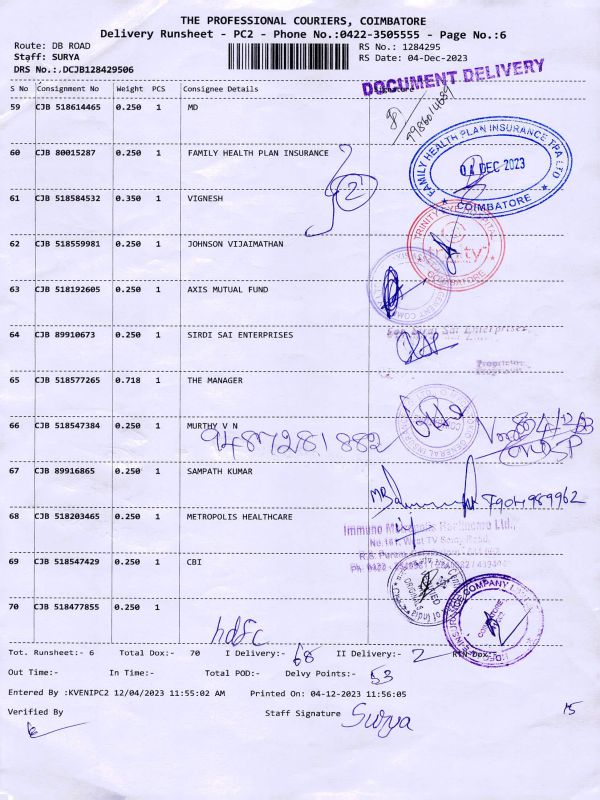 THE PROFESSIONAL COURIERS, COIMBATORE
Delivery Runsheet - PC2 - Phone No.:0422-3505555 - Page No.:6
Route: DB ROAD
RS No.: 1284295
Staff: SURYA
RS Date: 04-Dec-2023
DRS No.:.DCJB128429506
DOCUMENT DELIVERY
S No Consignment No Weight PCS Consignee Details
59 CJB 518614465 0.250 1 MD
60 CJB 80015287 0.250 1 FAMILY HEALTH PLAN INSURANCE
FAMILY HEALTH PLAN INSURANCE TPA LTD
DEC 2023
COIMBATORE
2
61 CJB 518584532 0.350 1 VIGNESH
TRINITY EYE HOSPITAL
COIMBATORE
62 CJB 518559981 0.250 1 JOHNSON VIJAIMATHAN
63 CJB 518192605 0.250 1 AXIS MUTUAL FUND
64 CJB 89910673 0.250 1 SIRDI SAI ENTERPRISES
For Sirdi Sai Enterprises
Proprietor
65 CJB 518577265 0.718 1 THE MANAGER
66 CJB 518547384 0.250 1 MURTHY V N
9487281882
67 CJB 89916865 0.250 1 SAMPATH KUMAR
7904989962
68 CJB 518203465 0.250 1 METROPOLIS HEALTHCARE
Immuno Healthcare Ltd.,
69 CJB 518547429 0.250 1 CBI
70 CJB 518477855 0.250 1
hdfc
INSURANCE COMPANY
Tot. Runsheet:- 6 Total Dox:- 70 I Delivery:- 68 II Delivery:- 2 RTN Dox:-
Out Time:- In Time:- Total POD:- Delvy Points:- 53
Entered By :KVENIPC2 12/04/2023 11:55:02 AM Printed On: 04-12-2023 11:56:05
Verified By Staff Signature Surya 15